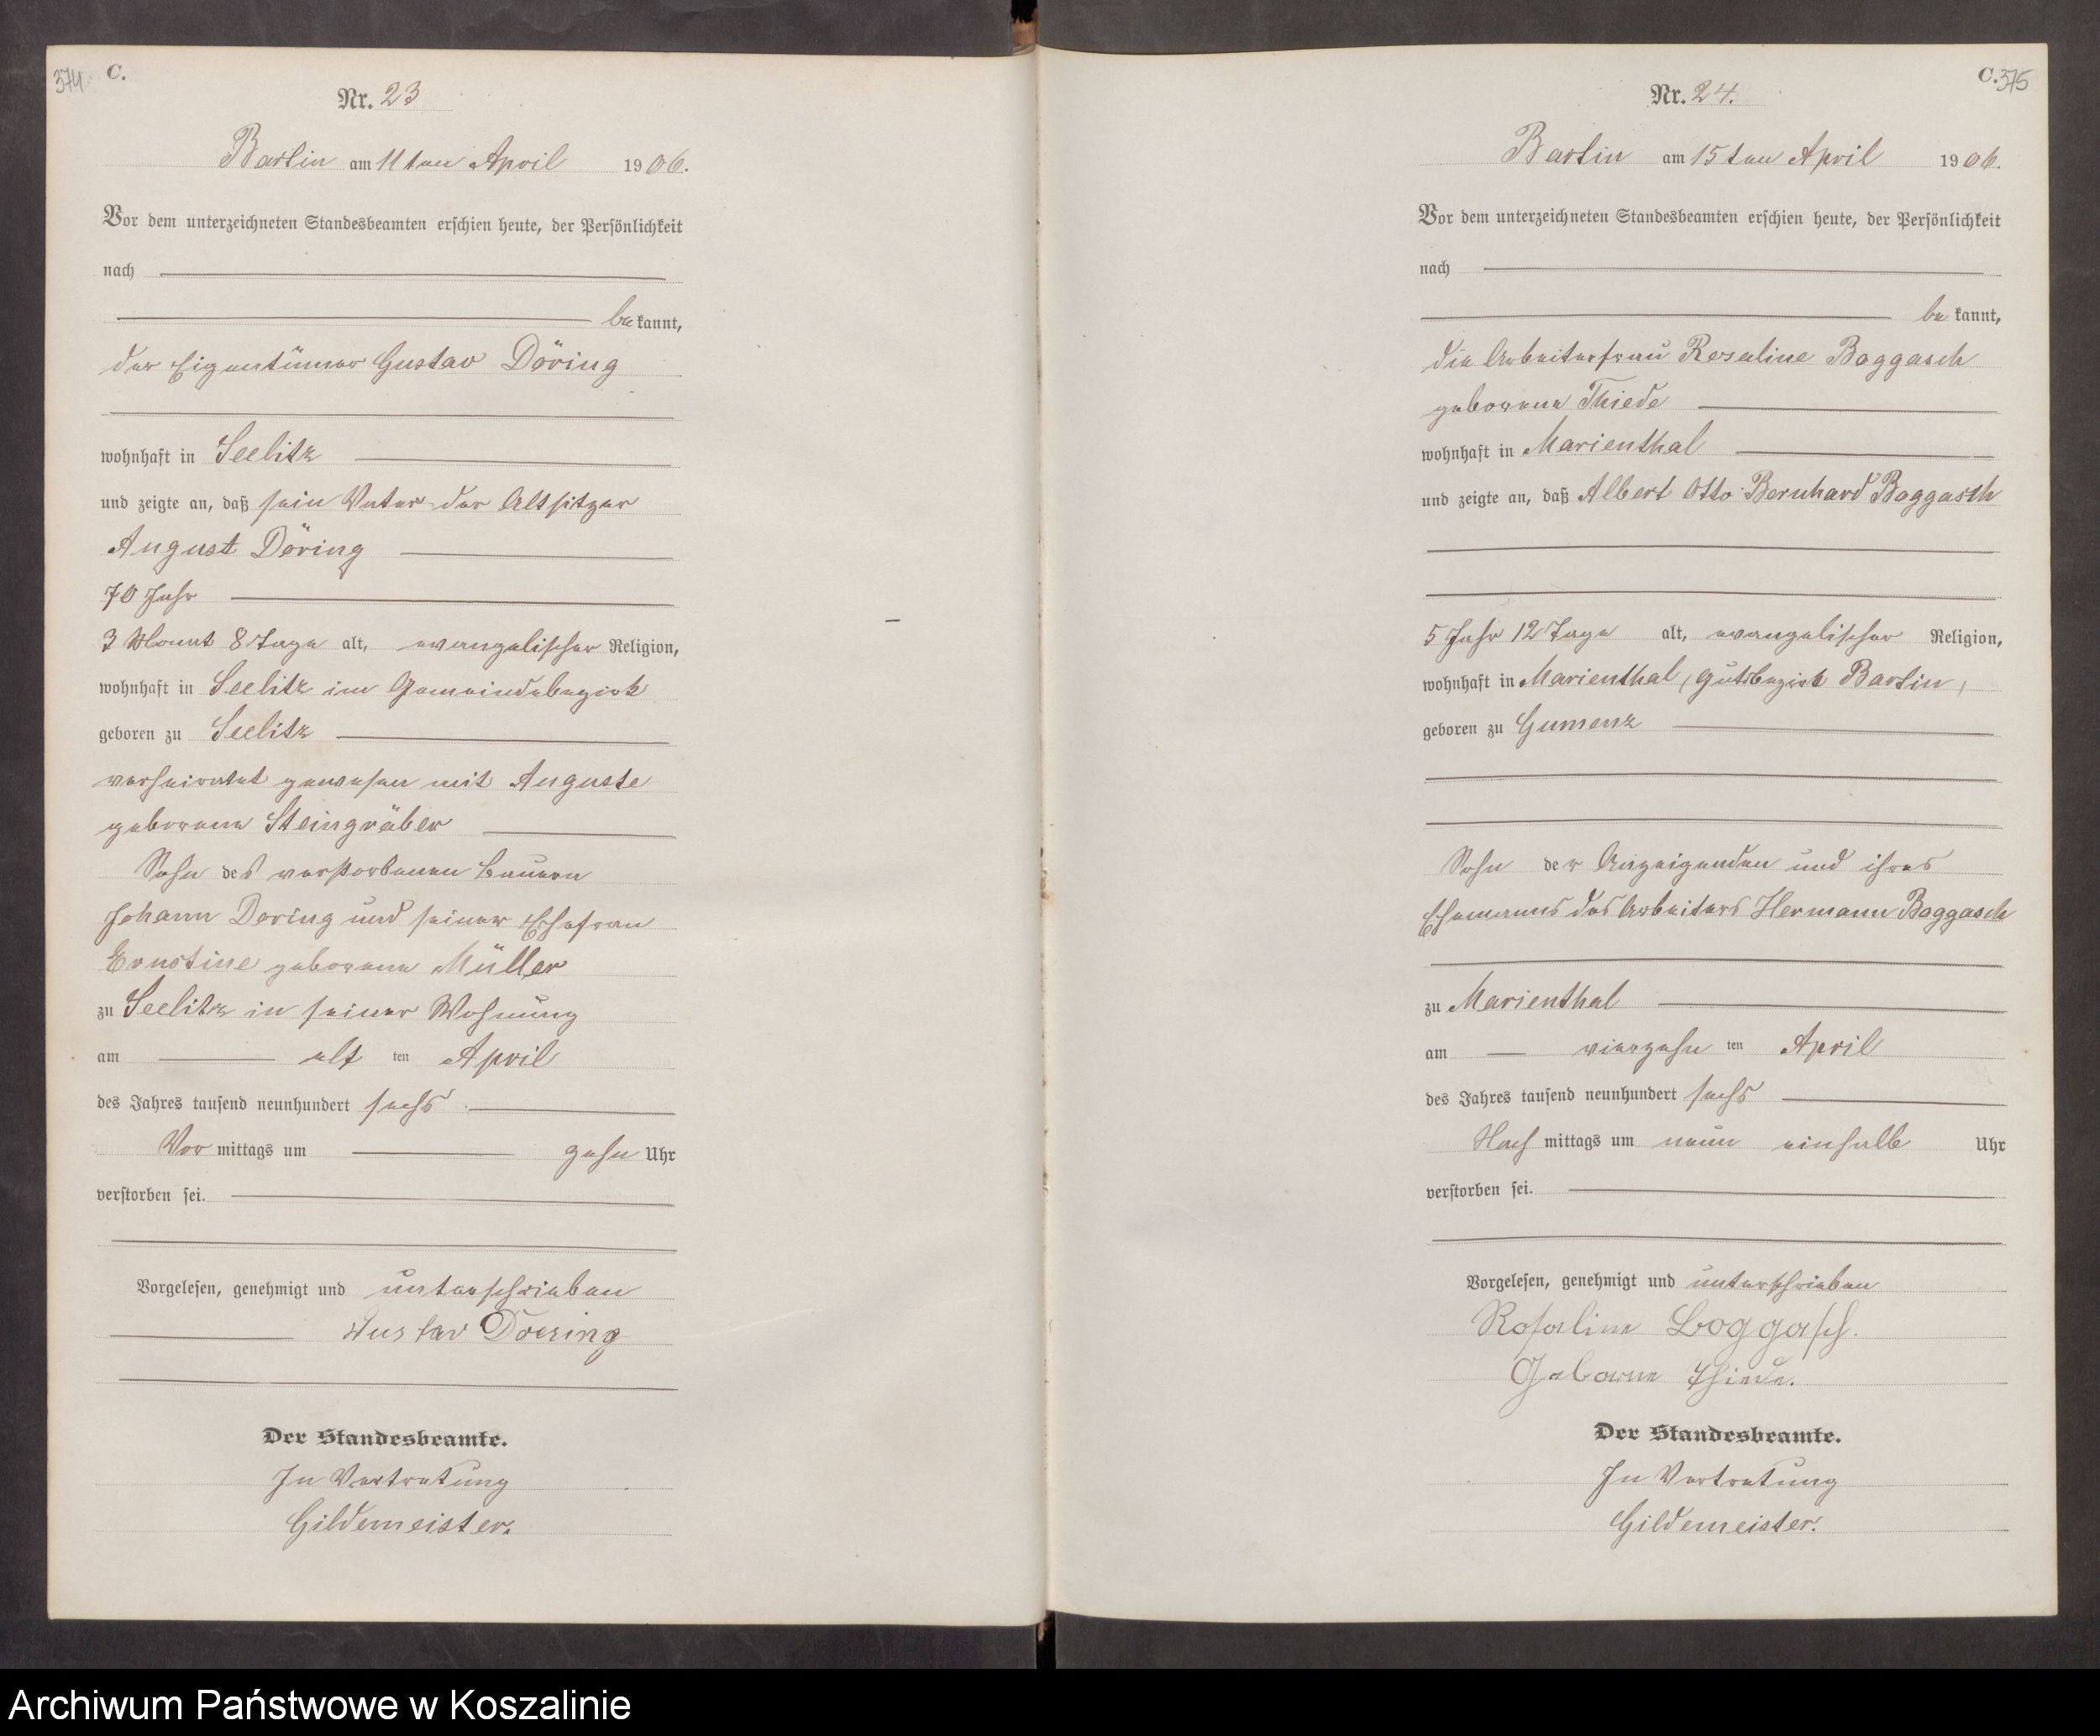 374 C.
Nr. 23
Bartin am 11ten April 1906.
Vor dem unterzeichneten Standesbeamten erschien heute, der Persönlichkeit
nach
bekannt,
der Eigentümer Gustav Döring
wohnhaft in Seelitz
und zeigte an, daß sein Vater der Altsitzer
August Döring
70 Jahr
3 Monat 8 Tage alt, evangelischer Religion,
wohnhaft in Seelitz im Gemeindebezirk
geboren zu Seelitz
verheiratet gewesen mit Auguste
geborene Steingräber
Sohn des verstorbenen Bauern
Johann Döring und seiner Ehefrau
Ernstine geborene Müller
zu Seelitz in seiner Wohnung
am elf ten April
des Jahres tausend neunhundert sechs
Vor mittags um zehn Uhr
verstorben sei.
Vorgelesen, genehmigt und unterschrieben
Gustav Doering
Der Standesbeamte.
In Vertretung
Gildemeister.
C. 375
Nr. 24.
Bartin am 15ten April 1906.
Vor dem unterzeichneten Standesbeamten erschien heute, der Persönlichkeit
nach
bekannt,
die Arbeiterfrau Rosaline Boggasch
geborene Thiede
wohnhaft in Marienthal
und zeigte an, daß Albert Otto Bernhard Boggasch
5 Jahr 12 Tage alt, evangelischer Religion,
wohnhaft in Marienthal, Gutsbezirk Bartin,
geboren zu Gumenz
Sohn der Anzeigenden und ihres
Ehemanns des Arbeiters Hermann Boggasch
zu Marienthal
am vierzehn ten April
des Jahres tausend neunhundert sechs
Nach mittags um neun einhalb Uhr
verstorben sei.
Vorgelesen, genehmigt und unterschrieben
Rosaline Boggasch.
Geborne Thiede.
Der Standesbeamte.
In Vertretung
Gildemeister.
Archiwum Państwowe w Koszalinie